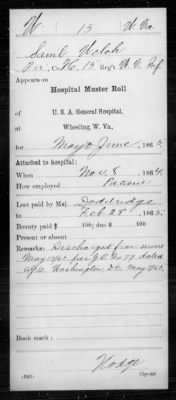 W 13 W. Va.
Saml Welch
Pvt., Co. H, 13 Reg't W. V. Inf.
Appears on
Hospital Muster Roll
of
U. S. A. General Hospital,
at Wheeling, W. Va.,
for May & June, 1865.
Attached to hospital:
When Nov. 8, 1864.
How employed Patient
Last paid by Maj. Doddridge
to Feb. 28, 1865.
Bounty paid $ 100; due $ 100
Present or absent
Remarks: Discharged from service
May 17/65 per G.O. No 77 dated
A.G.O. Washington, D.C. May 3/65.
Book mark:
Hodge
Copyist.